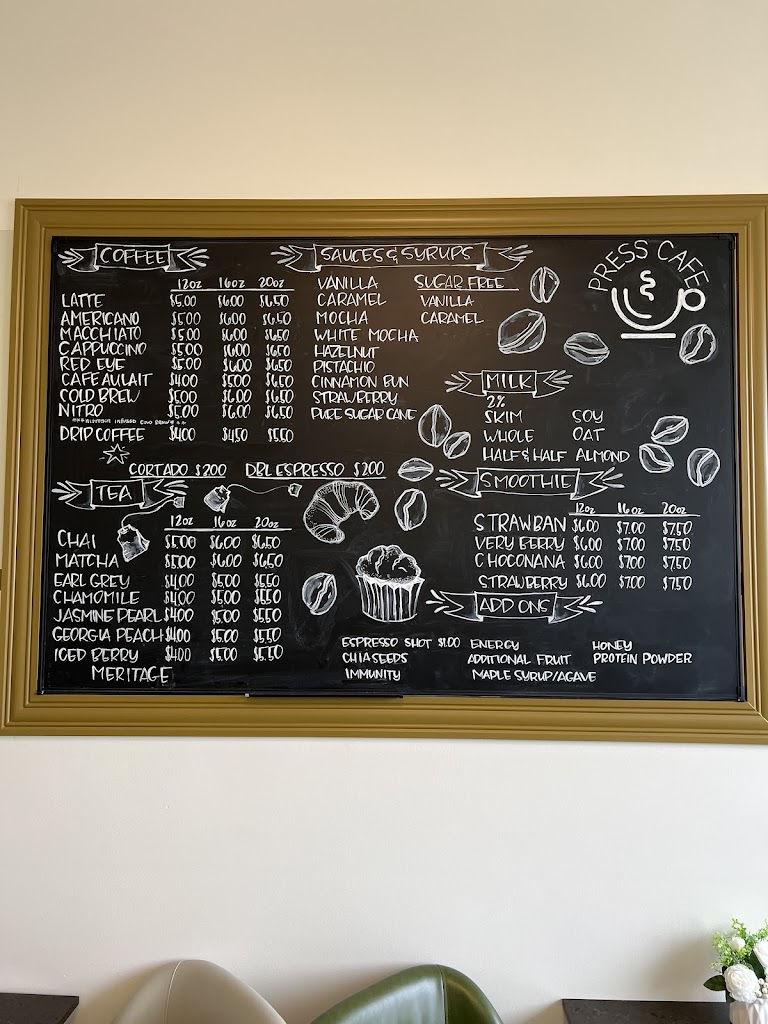 COFFEE
12oz 16oz 20oz
LATTE $5.00 $6.00 $6.50
AMERICANO $5.00 $6.00 $6.50
MACCHIATO $5.00 $6.00 $6.50
CAPPUCCINO $5.00 $6.00 $6.50
RED EYE $5.00 $6.00 $6.50
CAFE AU LAIT $4.00 $5.00 $6.50
COLD BREW $5.00 $6.00 $6.50
NITRO $5.00 $6.00 $6.50
DRIP COFFEE $4.00 $4.50 $5.50
CORTADO $2.00 DBL ESPRESSO $2.00
TEA
12oz 16oz 20oz
CHAI $5.00 $6.00 $6.50
MATCHA $5.00 $6.00 $6.50
EARL GREY $4.00 $5.00 $5.50
CHAMOMILE $4.00 $5.00 $5.50
JASMINE PEARL $4.00 $5.00 $5.50
GEORGIA PEACH $4.00 $5.00 $5.50
ICED BERRY $4.00 $5.00 $5.50
MERITAGE
SAUCES & SYRUPS
VANILLA
CARAMEL
MOCHA
WHITE MOCHA
HAZELNUT
PISTACHIO
CINNAMON BUN
STRAWBERRY
PURE SUGAR CANE
SUGAR FREE
VANILLA
CARAMEL
PRESS CAFE
MILK
2%
SKIM SOY
WHOLE OAT
HALF & HALF ALMOND
SMOOTHIE
12oz 16oz 20oz
STRAWBAN $6.00 $7.00 $7.50
VERY BERRY $6.00 $7.00 $7.50
CHOCONANA $6.00 $7.00 $7.50
STRAWBERRY $6.00 $7.00 $7.50
ADD ONS
ESPRESSO SHOT $1.00 ENERGY HONEY
CHIA SEEDS ADDITIONAL FRUIT PROTEIN POWDER
IMMUNITY MAPLE SYRUP/AGAVE